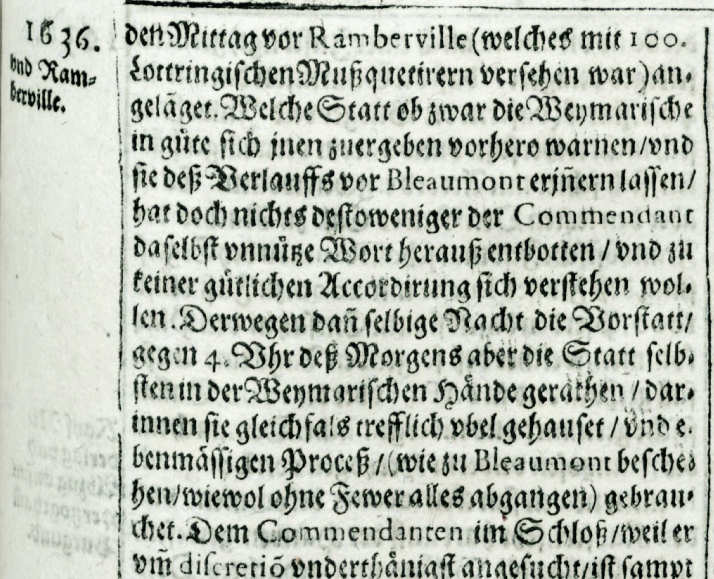 1636.
vnd Ram-
berville.
den Mittag vor Ramberville (welches mit 100.
Lottringischen Mußquetirern versehen war) an-
geläget. Welche Statt ob zwar die Weymarische
in güte sich jnen zuergeben vorhero warnen / vnd
sie deß Verlauffs vor Bleaumont erjñern lassen /
hat doch nichts destoweniger der Commendant
daselbst vnnütze Wort herauß entbotten / vnd zu
keiner gütlichen Accordirung sich verstehen wol-
len. Derwegen dañ selbige Nacht die Vorstatt /
gegen 4. Vhr deß Morgens aber die Statt selb-
sten in der Weymarischen Hände gerathen / dar-
innen sie gleichfals trefflich vbel gehauset / vnd e-
benmässigen Proceß / (wie zu Bleaumont besche-
hen / wiewol ohne Fewer alles abgangen) gebrau-
chet. Dem Commendanten im Schloß / weil er
vm̃ discretiõ vnderthänigst angesucht / ist sampt